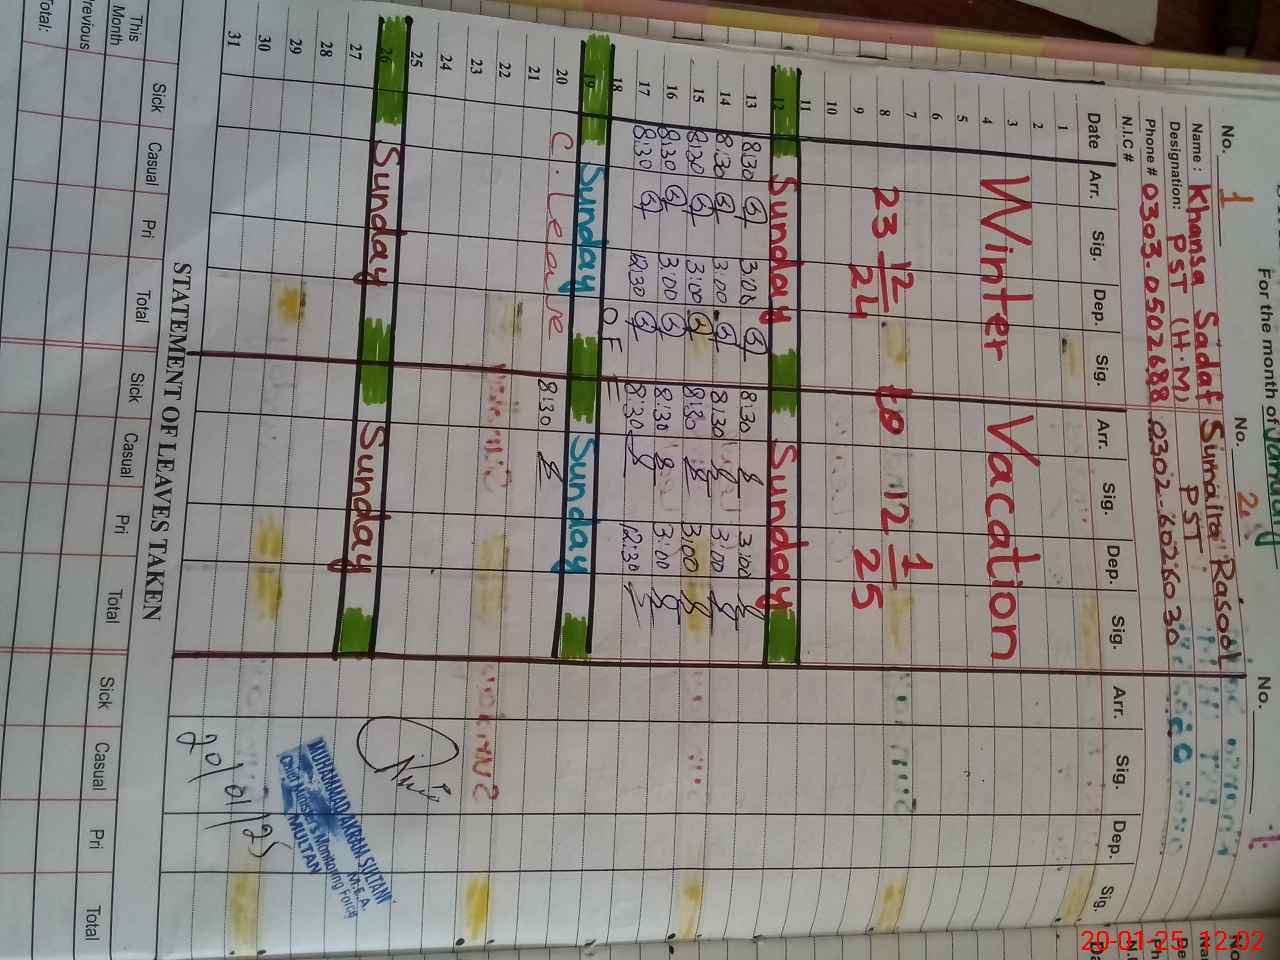 For the month of January
No. 1 No. 2 No.
Name: Khansa Sadaf Sumaira Rasool
Designation: PST (H.M) PST
Phone # 0303-0502688 0302-6026030
N.I.C #
Date Arr. Sig. Dep. Sig. Arr. Sig. Dep. Sig. Arr. Sig. Dep. Sig.
1
2
3
4 Winter Vacation
5
6
7
8 23 12/24 to 12 1/25
9
10
11
12 Sunday Sunday
13 8:30 3:00 8:30 3:00
14 8:30 3:00 8:30 3:00
15 8:30 3:00 8:30 3:00
16 8:30 3:00 8:30 3:00
17 8:30 12:30 8:30 12:30
18 OFF
19 Sunday Sunday
20 C. Leave 8:30
21
22
23
24
25
26 Sunday Sunday
27
28
29
30
31
MUHAMMAD AKRAM SULTANI
M.E.A.
Chief Minister's Monitoring Force
MULTAN
20/01/25
STATEMENT OF LEAVES TAKEN
Sick Casual Pri Total Sick Casual Pri Total Sick Casual Pri Total
This Month
Previous
Total:
20-01-25 12:02